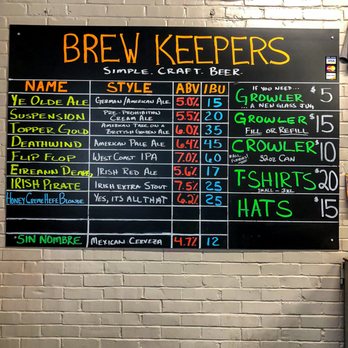 BREW KEEPERS
SIMPLE. CRAFT. BEER.
NAME STYLE ABV IBU
YE OLDE ALE GERMAN/AMERICAN ALE 5.0% 15
SUSPENSION PRE. PROHIBITION CREAM ALE 5.5% 20
TOPPER GOLD AMERICAN TAKE ON A BRITISH GOLDEN ALE 6.0% 35
DEATHWIND AMERICAN PALE ALE 6.4% 45
FLIP FLOP WEST COAST IPA 7.0% 60
EIREANN DEARG IRISH RED ALE 5.6% 17
IRISH PIRATE IRISH EXTRA STOUT 7.5% 25
HONEY CREME HEFE BLONDE YES, ITS ALL THAT 6.2% 25
*SIN NOMBRE MEXICAN CERVEZA 4.7% 12
IF YOU NEED...
GROWLER $5
A NEW GLASS JUG
GROWLER $15
FILL OR REFILL
CROWLER $10
32OZ CAN
T-SHIRTS $20
SMALL - 3XL
HATS $15